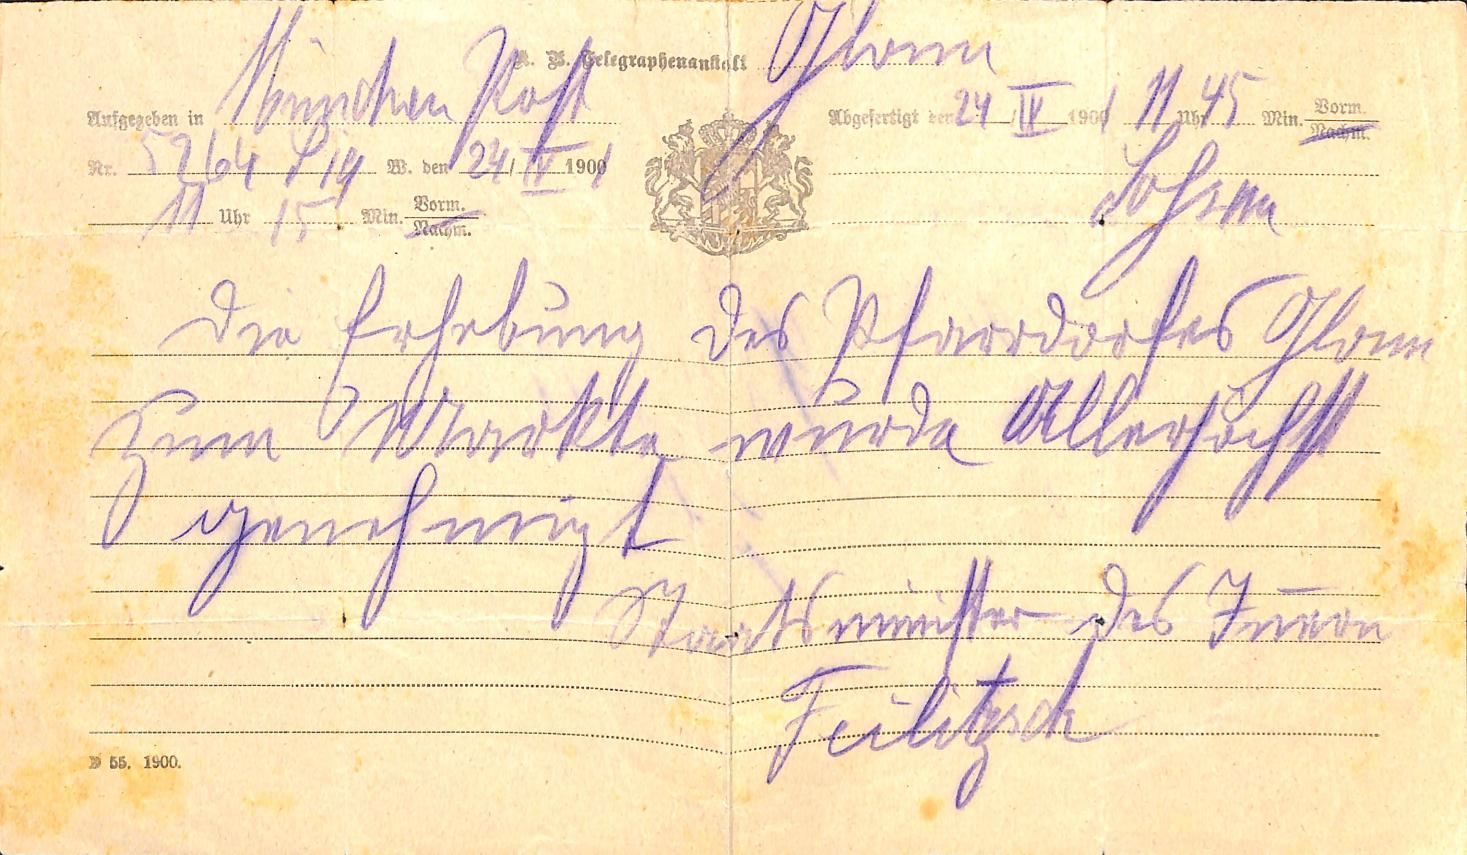 K. B. Telegraphenanstalt Glonn
Aufgegeben in München Post
Abgefertigt den 24 IV 1901 11 Uhr 45 Min. Vorm. Nachm.
Nr. 5264 19 W. den 24/IV 1901
11 Uhr 15 Min. Vorm. Nachm.
Die Erhebung des Pfarrdorfes Glonn
zum Markte wurde Allerhöchst
genehmigt
Staatsminister des Innern
Feilitzsch
D 55. 1900.